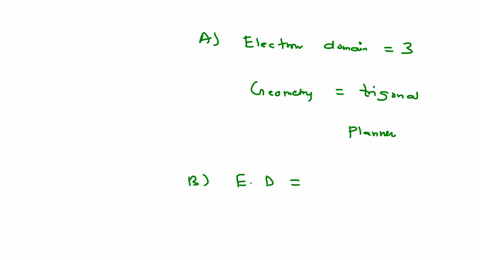 A) Electron domain = 3
Geometry = trigonal
Planner
B) E. D =